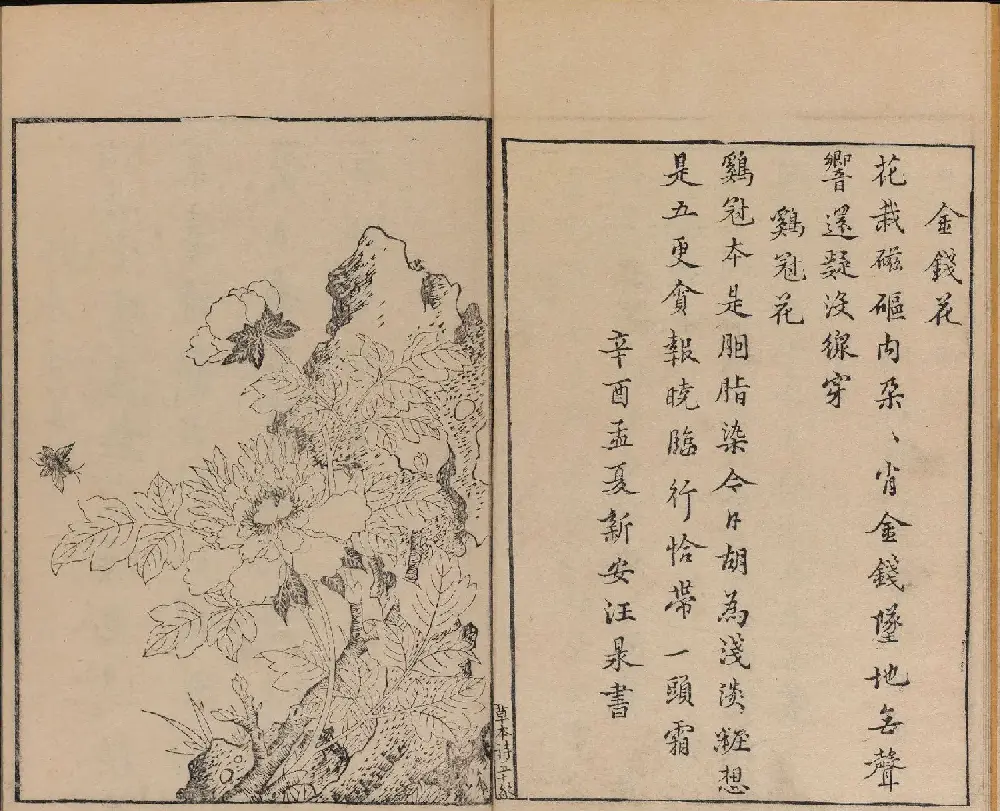 金錢花
花栽磁碙内朶、肖金錢墜地無聲
響還疑沒線穿
鷄冠花
鷄冠本是胭脂染今日胡為淺淡粧想
是五更貪報曉臨行恰帶一頭霜
辛酉孟夏新安汪泉書
草本詩